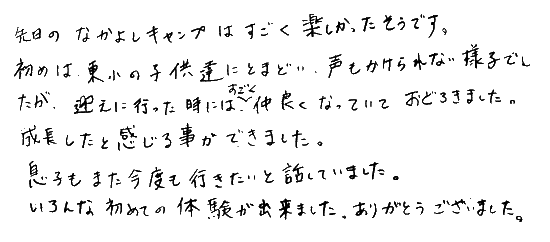 先日の なかよしキャンプ は すごく 楽しかったそうです。
初めは、東小の子供達にとまどい、声もかけられない様子でし
たが、迎えに行った時には、すごく仲良くなっていて おどろきました。
成長したと感じる事ができました。
息子もまた今度も行きたいと話していました。
いろんな初めての体験が出来ました。ありがとうございました。